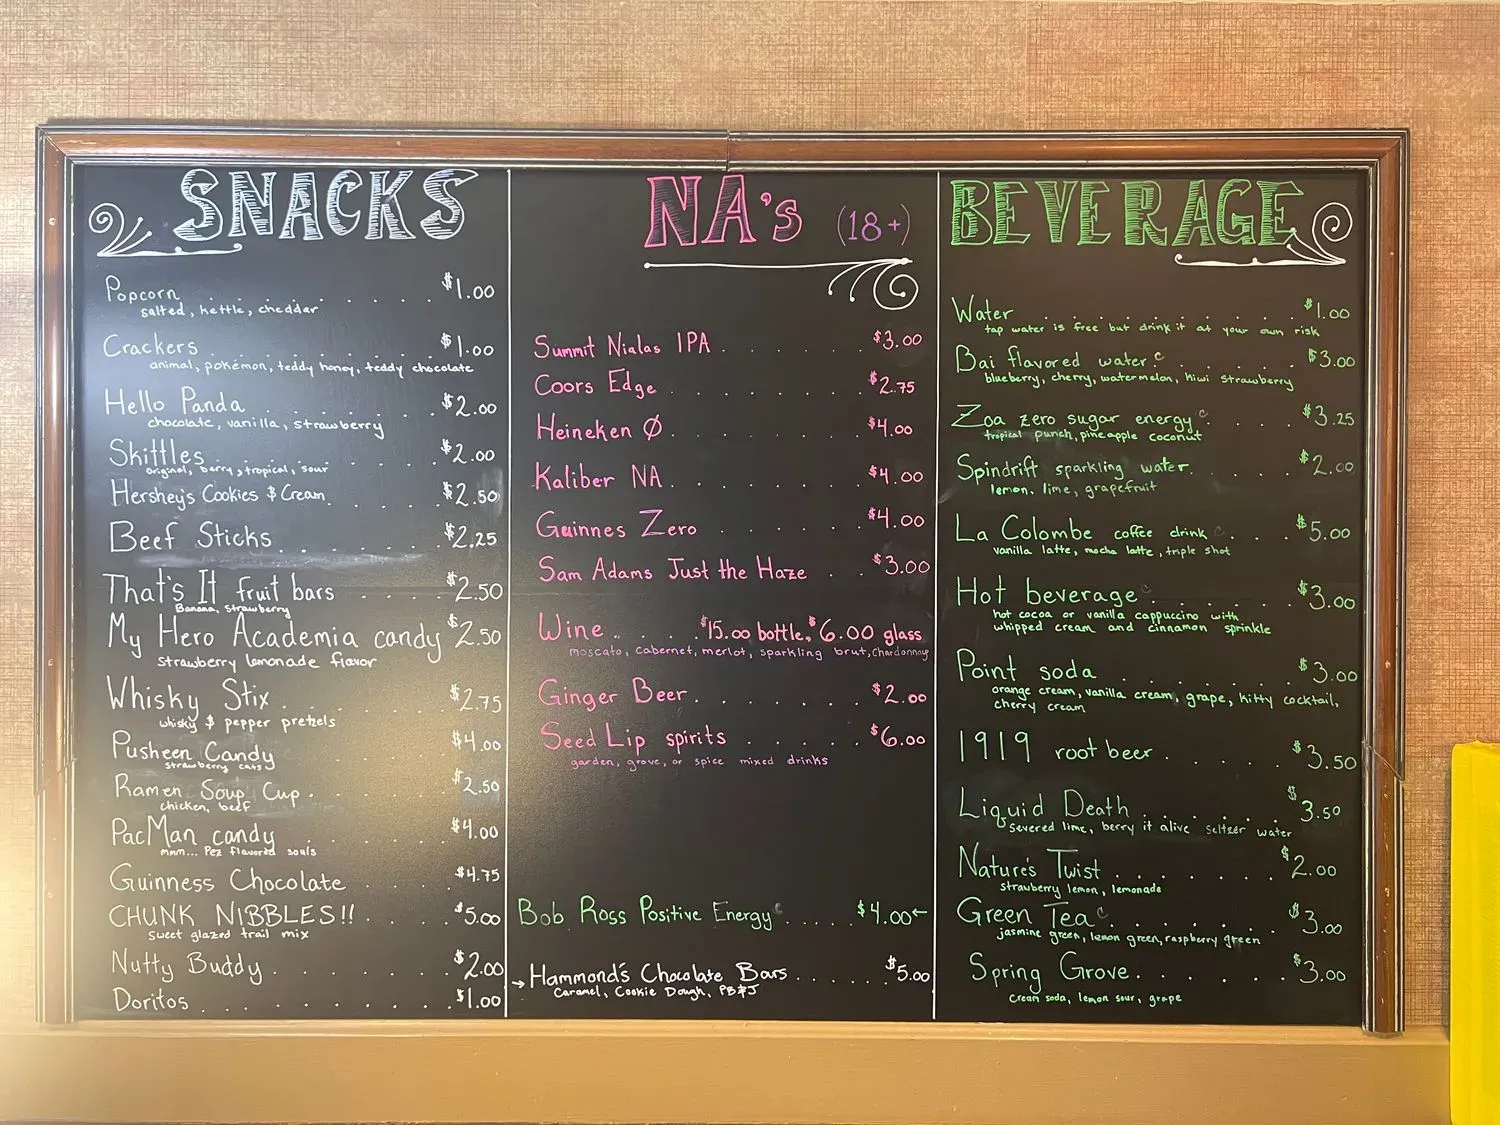 SNACKS
Popcorn . . . . . . . . $1.00
salted, kettle, cheddar
Crackers . . . . . . . . $1.00
animal, pokémon, teddy honey, teddy chocolate
Hello Panda . . . . . . . $2.00
chocolate, vanilla, strawberry
Skittles . . . . . . . $2.00
original, berry, tropical, sour
Hershey's Cookies & Cream . . . . $2.50
Beef Sticks . . . . . $2.25
That's It fruit bars . . . . $2.50
Banana, strawberry
My Hero Academia candy $2.50
strawberry lemonade flavor
Whisky Stix . . . . . $2.75
whisky & pepper pretzels
Pusheen Candy . . . . . $4.00
strawberry cats
Ramen Soup Cup . . . . . $2.50
chicken, beef
PacMan candy . . . . . $4.00
mmm... Pez flavored souls
Guinness Chocolate . . . . $4.75
CHUNK NIBBLES!! . . . . $5.00
sweet glazed trail mix
Nutty Buddy . . . . . . $2.00
Doritos . . . . . . . $1.00
NA's (18+)
Summit Nialas IPA . . . . . $3.00
Coors Edge . . . . . . $2.75
Heineken Ø . . . . . . $4.00
Kaliber NA . . . . . . $4.00
Guinnes Zero . . . . . $4.00
Sam Adams Just the Haze . . $3.00
Wine . . . . $15.00 bottle, $6.00 glass
moscato, cabernet, merlot, sparkling brut, chardonnay
Ginger Beer . . . . . . $2.00
Seed Lip spirits . . . . . $6.00
garden, grove, or spice mixed drinks
Bob Ross Positive Energy c . . . . $4.00 ←
→ Hammond's Chocolate Bars . . . . $5.00
Caramel, Cookie Dough, PB&J
BEVERAGE
Water . . . . . . . . . $1.00
tap water is free but drink it at your own risk
Bai flavored water c . . . . . $3.00
blueberry, cherry, watermelon, kiwi strawberry
Zoa zero sugar energy c . . . . $3.25
tropical punch, pineapple coconut
Spindrift sparkling water . . . . $2.00
lemon, lime, grapefruit
La Colombe coffee drink c . . . $5.00
vanilla latte, mocha latte, triple shot
Hot beverage c . . . . . $3.00
hot cocoa or vanilla cappuccino with
whipped cream and cinnamon sprinkle
Point soda . . . . . . . $3.00
orange cream, vanilla cream, grape, kitty cocktail,
cherry cream
1919 root beer . . . . . $3.50
Liquid Death . . . . . $3.50
severed lime, berry it alive seltzer water
Nature's Twist . . . . . . . $2.00
strawberry lemon, lemonade
Green Tea c . . . . . . $3.00
jasmine green, lemon green, raspberry green
Spring Grove . . . . . . $3.00
Cream soda, lemon sour, grape